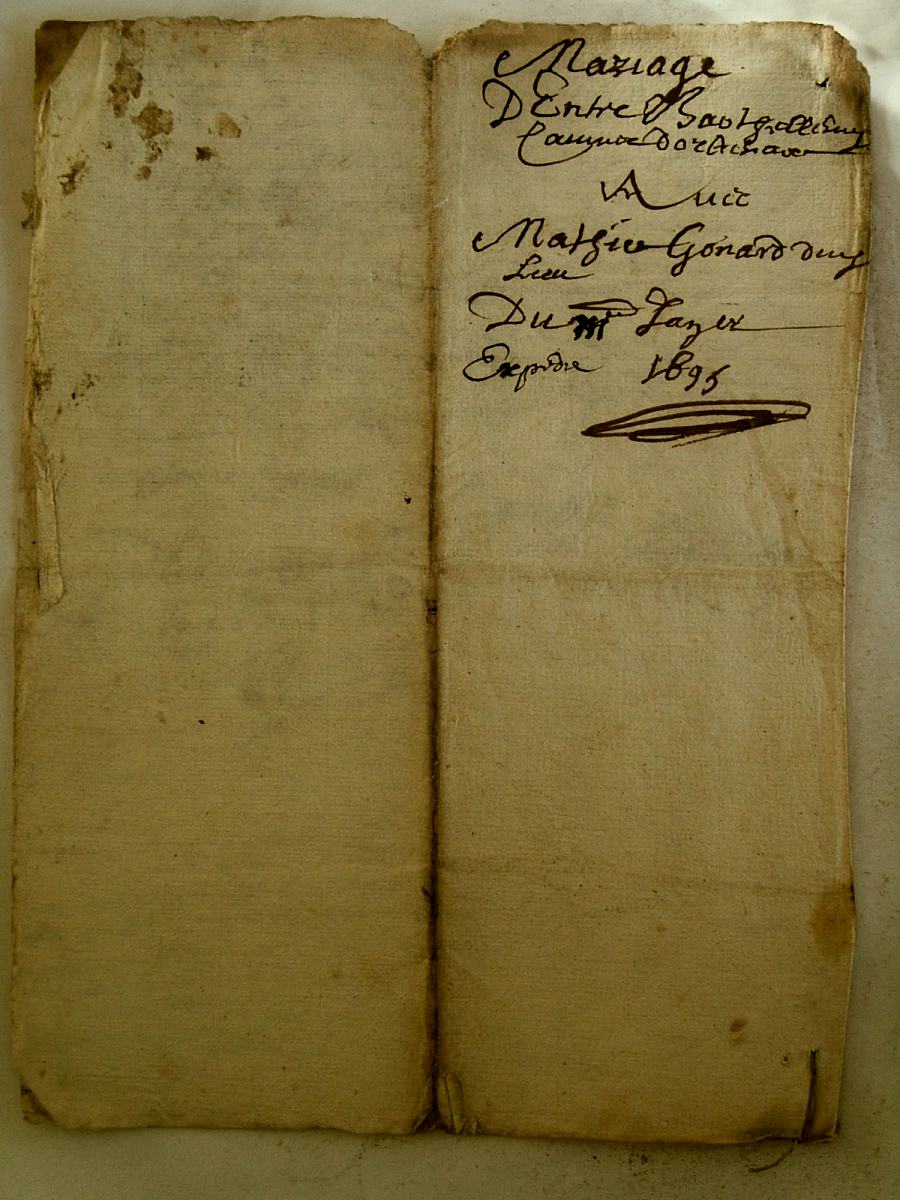 Mariage
D'Entre Barthellemy
A uec
Mathie Gonard dud
Lieu
Du Janver
Expedie 1695